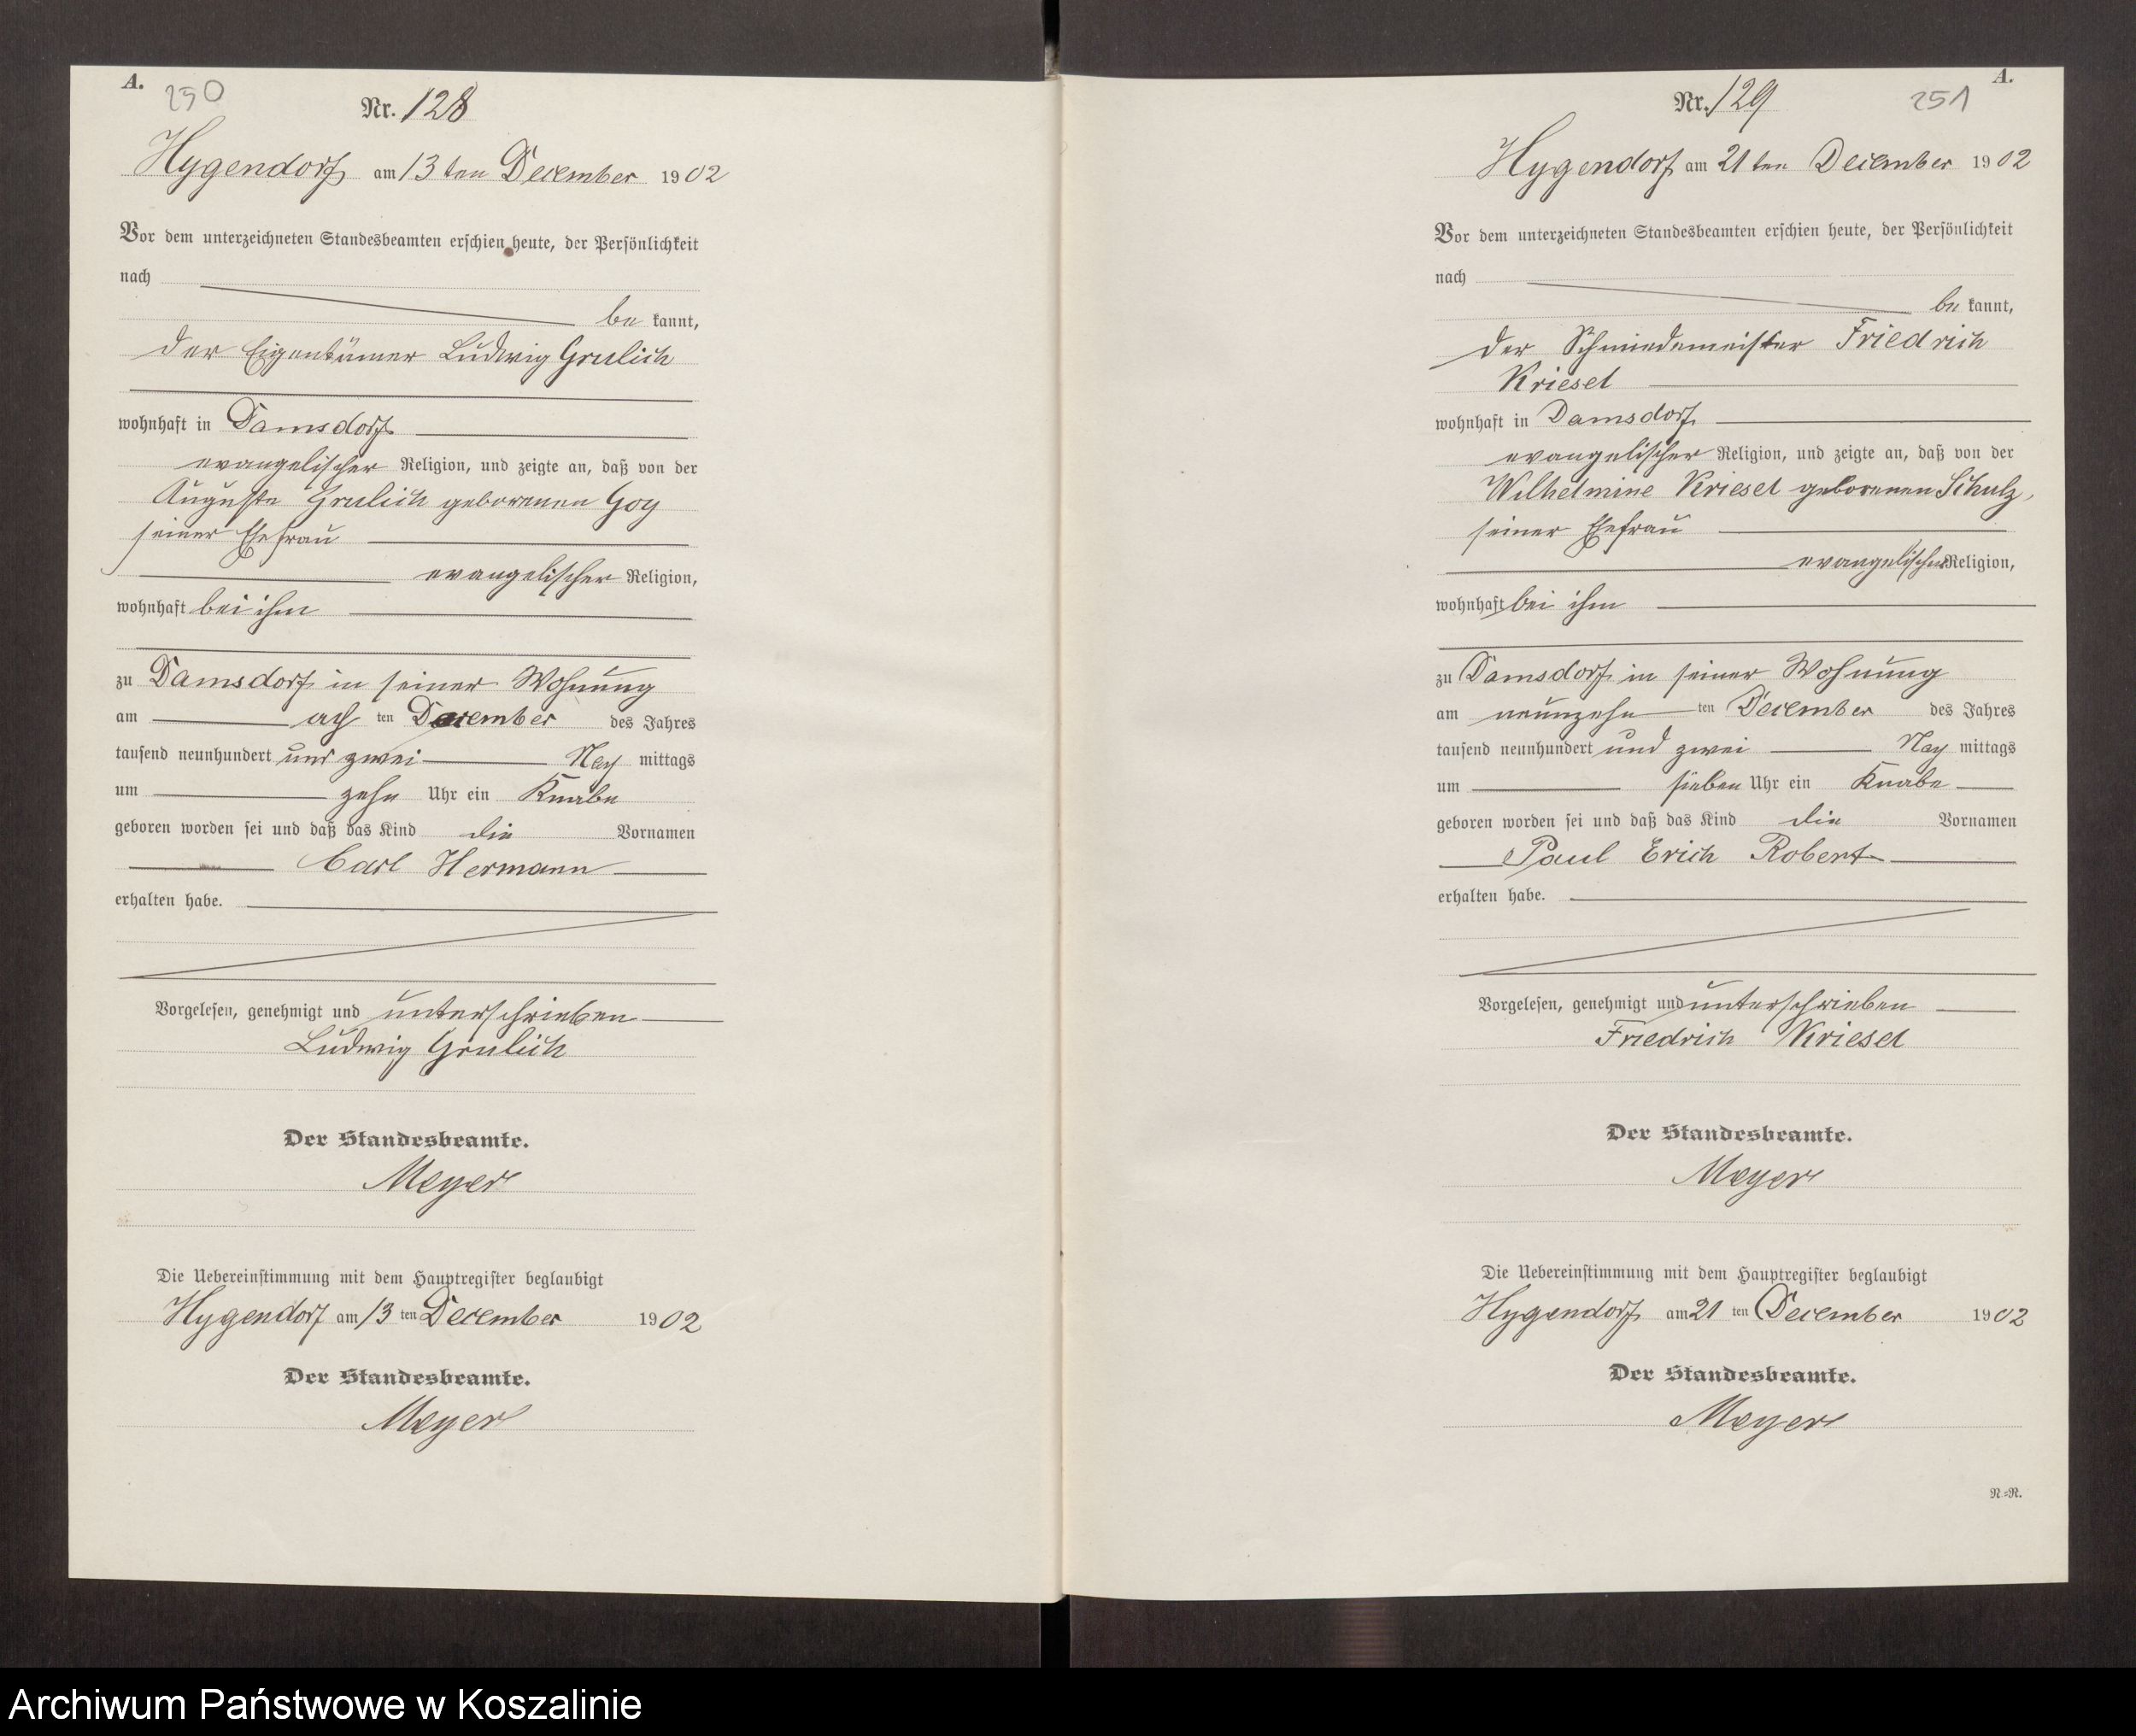 A.
250
Nr. 128
Hygendorf am 13 ten December 1902
Vor dem unterzeichneten Standesbeamten erschien heute, der Persönlichkeit
nach
be kannt,
der Eigentümer Ludwig Grulich
wohnhaft in Damsdorf
evangelischer Religion, und zeigte an, daß von der
Auguste Grulich geborenen Goy
seiner Ehefrau
evangelischer Religion,
wohnhaft bei ihm
zu Damsdorf in seiner Wohnung
am ach ten December des Jahres
tausend neunhundert und zwei Nach mittags
um zehn Uhr ein Knabe
geboren worden sei und daß das Kind die Vornamen
Carl Hermann
erhalten habe.
Vorgelesen, genehmigt und unterschrieben
Ludwig Grulich
Der Standesbeamte.
Meyer
Die Uebereinstimmung mit dem Hauptregister beglaubigt
Hygendorf am 13 ten December 1902
Der Standesbeamte.
Meyer
A.
251
Nr. 129
Hygendorf am 21 ten December 1902
Vor dem unterzeichneten Standesbeamten erschien heute, der Persönlichkeit
nach
be kannt,
der Schmiedemeister Friedrich
Kriesel
wohnhaft in Damsdorf
evangelischer Religion, und zeigte an, daß von der
Wilhelmine Kriesel geborenen Schulz,
seiner Ehefrau
evangelischer Religion,
wohnhaft bei ihm
zu Damsdorf in seiner Wohnung
am neunzehn ten December des Jahres
tausend neunhundert und zwei Nach mittags
um sieben Uhr ein Knabe
geboren worden sei und daß das Kind die Vornamen
Paul Erich Robert
erhalten habe.
Vorgelesen, genehmigt und unterschrieben
Friedrich Kriesel
Der Standesbeamte.
Meyer
Die Uebereinstimmung mit dem Hauptregister beglaubigt
Hygendorf am 21 ten December 1902
Der Standesbeamte.
Meyer
N.=R.
Archiwum Państwowe w Koszalinie